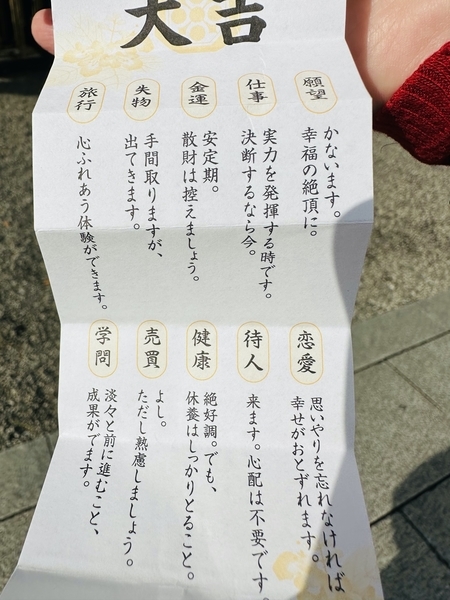 大吉
願望
かないます。
幸福の絶頂に。
仕事
実力を発揮する時です。
決断するなら今。
金運
安定期。
散財は控えましょう。
失物
手間取りますが、
出てきます。
旅行
心ふれあう体験ができます。
恋愛
思いやりを忘れなければ
幸せがおとずれます。
待人
来ます。心配は不要です。
健康
絶好調。でも、
休養はしっかりとること。
売買
よし。
ただし熟慮しましょう。
学問
淡々と前に進むこと、
成果がでます。